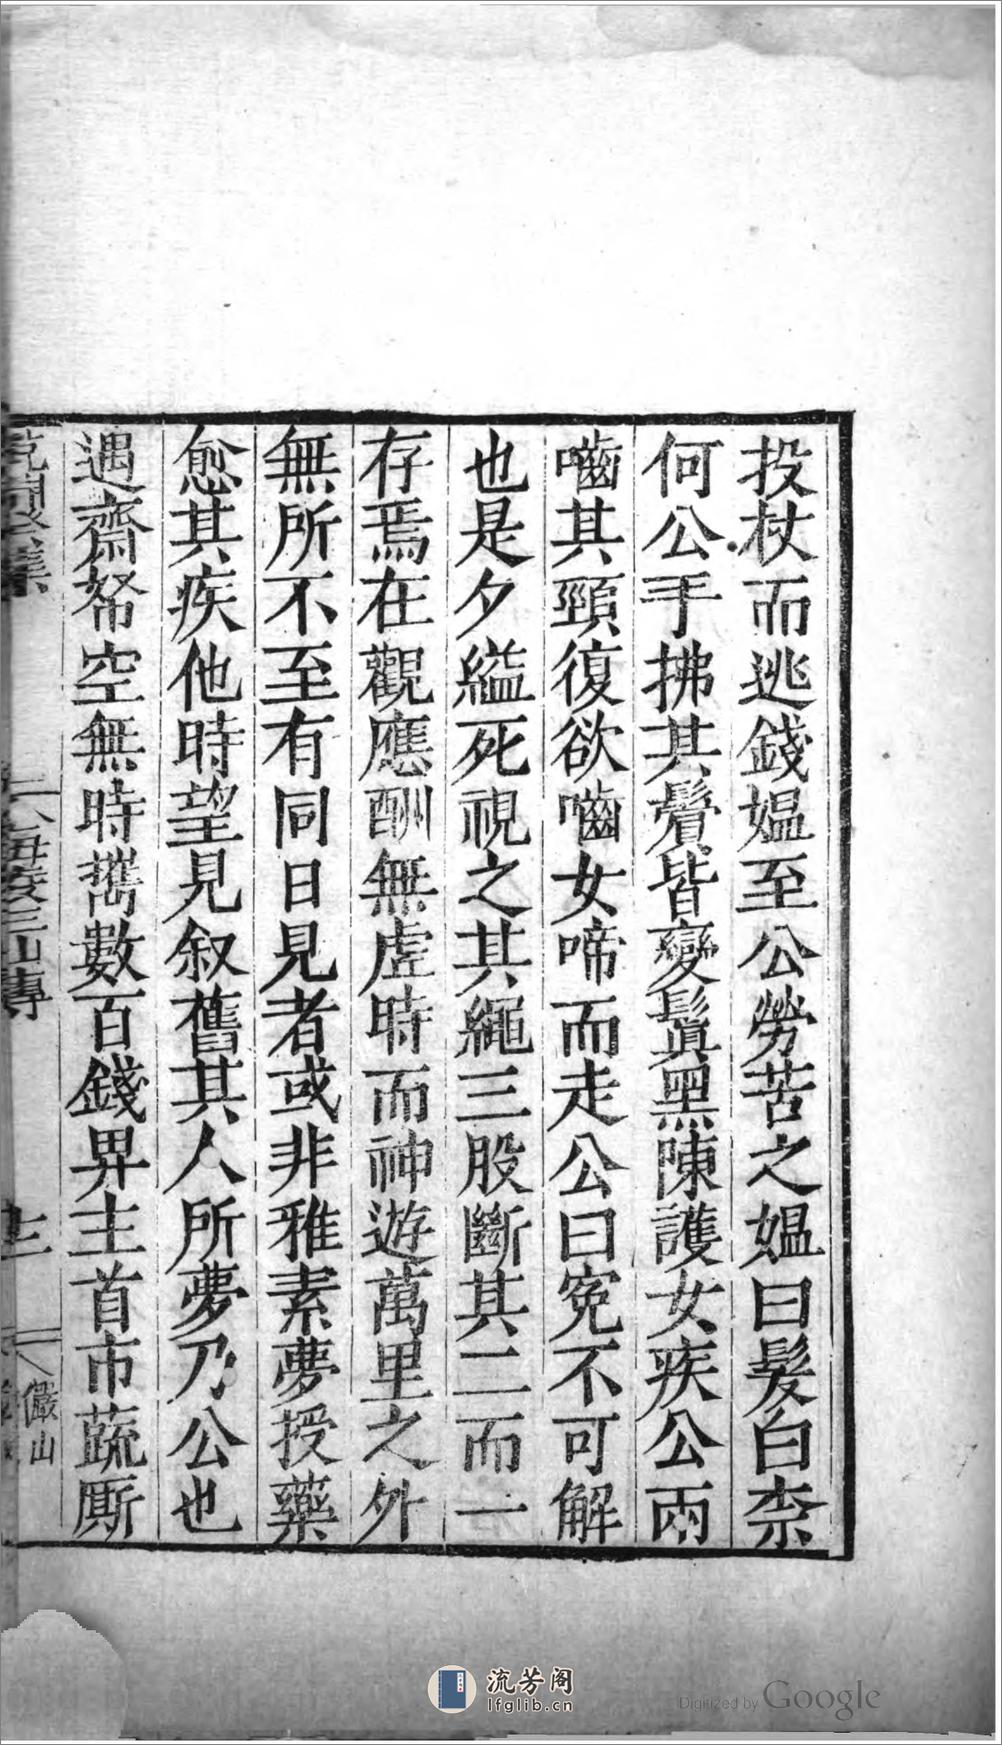 投杖而逃錢媼至公勞苦之媼曰髮白柰
何公手拂其鬢皆變鬒黑陳護女疾公兩
嚙其頸復欲嚙女啼而走公曰冤不可解
也是夕縊死視之其繩三股斷其二而一
存焉在觀應酬無虛時而神遊萬里之外
無所不至有同日見者或非雅素夢授藥
愈其疾他時望見叙舊其人所夢乃公也
遇齋帑空無時攜數百錢畀主首市蔬厮
海陵三山傳
儼山
流芳阁
lfglib.cn
Digitized by Google